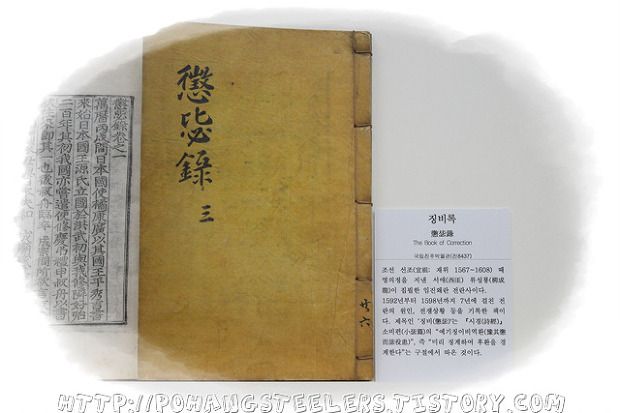 懲毖錄卷之一
萬曆丙戌間日本國使橘康廣以其國王平秀吉書
來始日本國王源氏立國於洪武初與我修隣好殆
二百年其初我國亦嘗遣使修慶弔禮申叔舟以書
懲毖錄
三
징비록
懲毖錄
The Book of Correction
국립진주박물관(진6437)
조선 선조(宣祖: 재위 1567~1608) 때
영의정을 지낸 서애(西厓) 류성룡(柳成
龍)이 집필한 임진왜란 전란사이다.
1592년부터 1598년까지 7년에 걸친 전
란의 원인, 전쟁상황 등을 기록한 책이
다. 제목인 '징비(懲毖)'는 『시경(詩經)』
소비편(小毖篇)의 "예기징이비역환(豫其懲
而毖役患)", 즉 "미리 징계하여 후환을 경
계한다"는 구절에서 따온 것이다.
HTTP://POHANGSTEELERS.TISTORY.COM